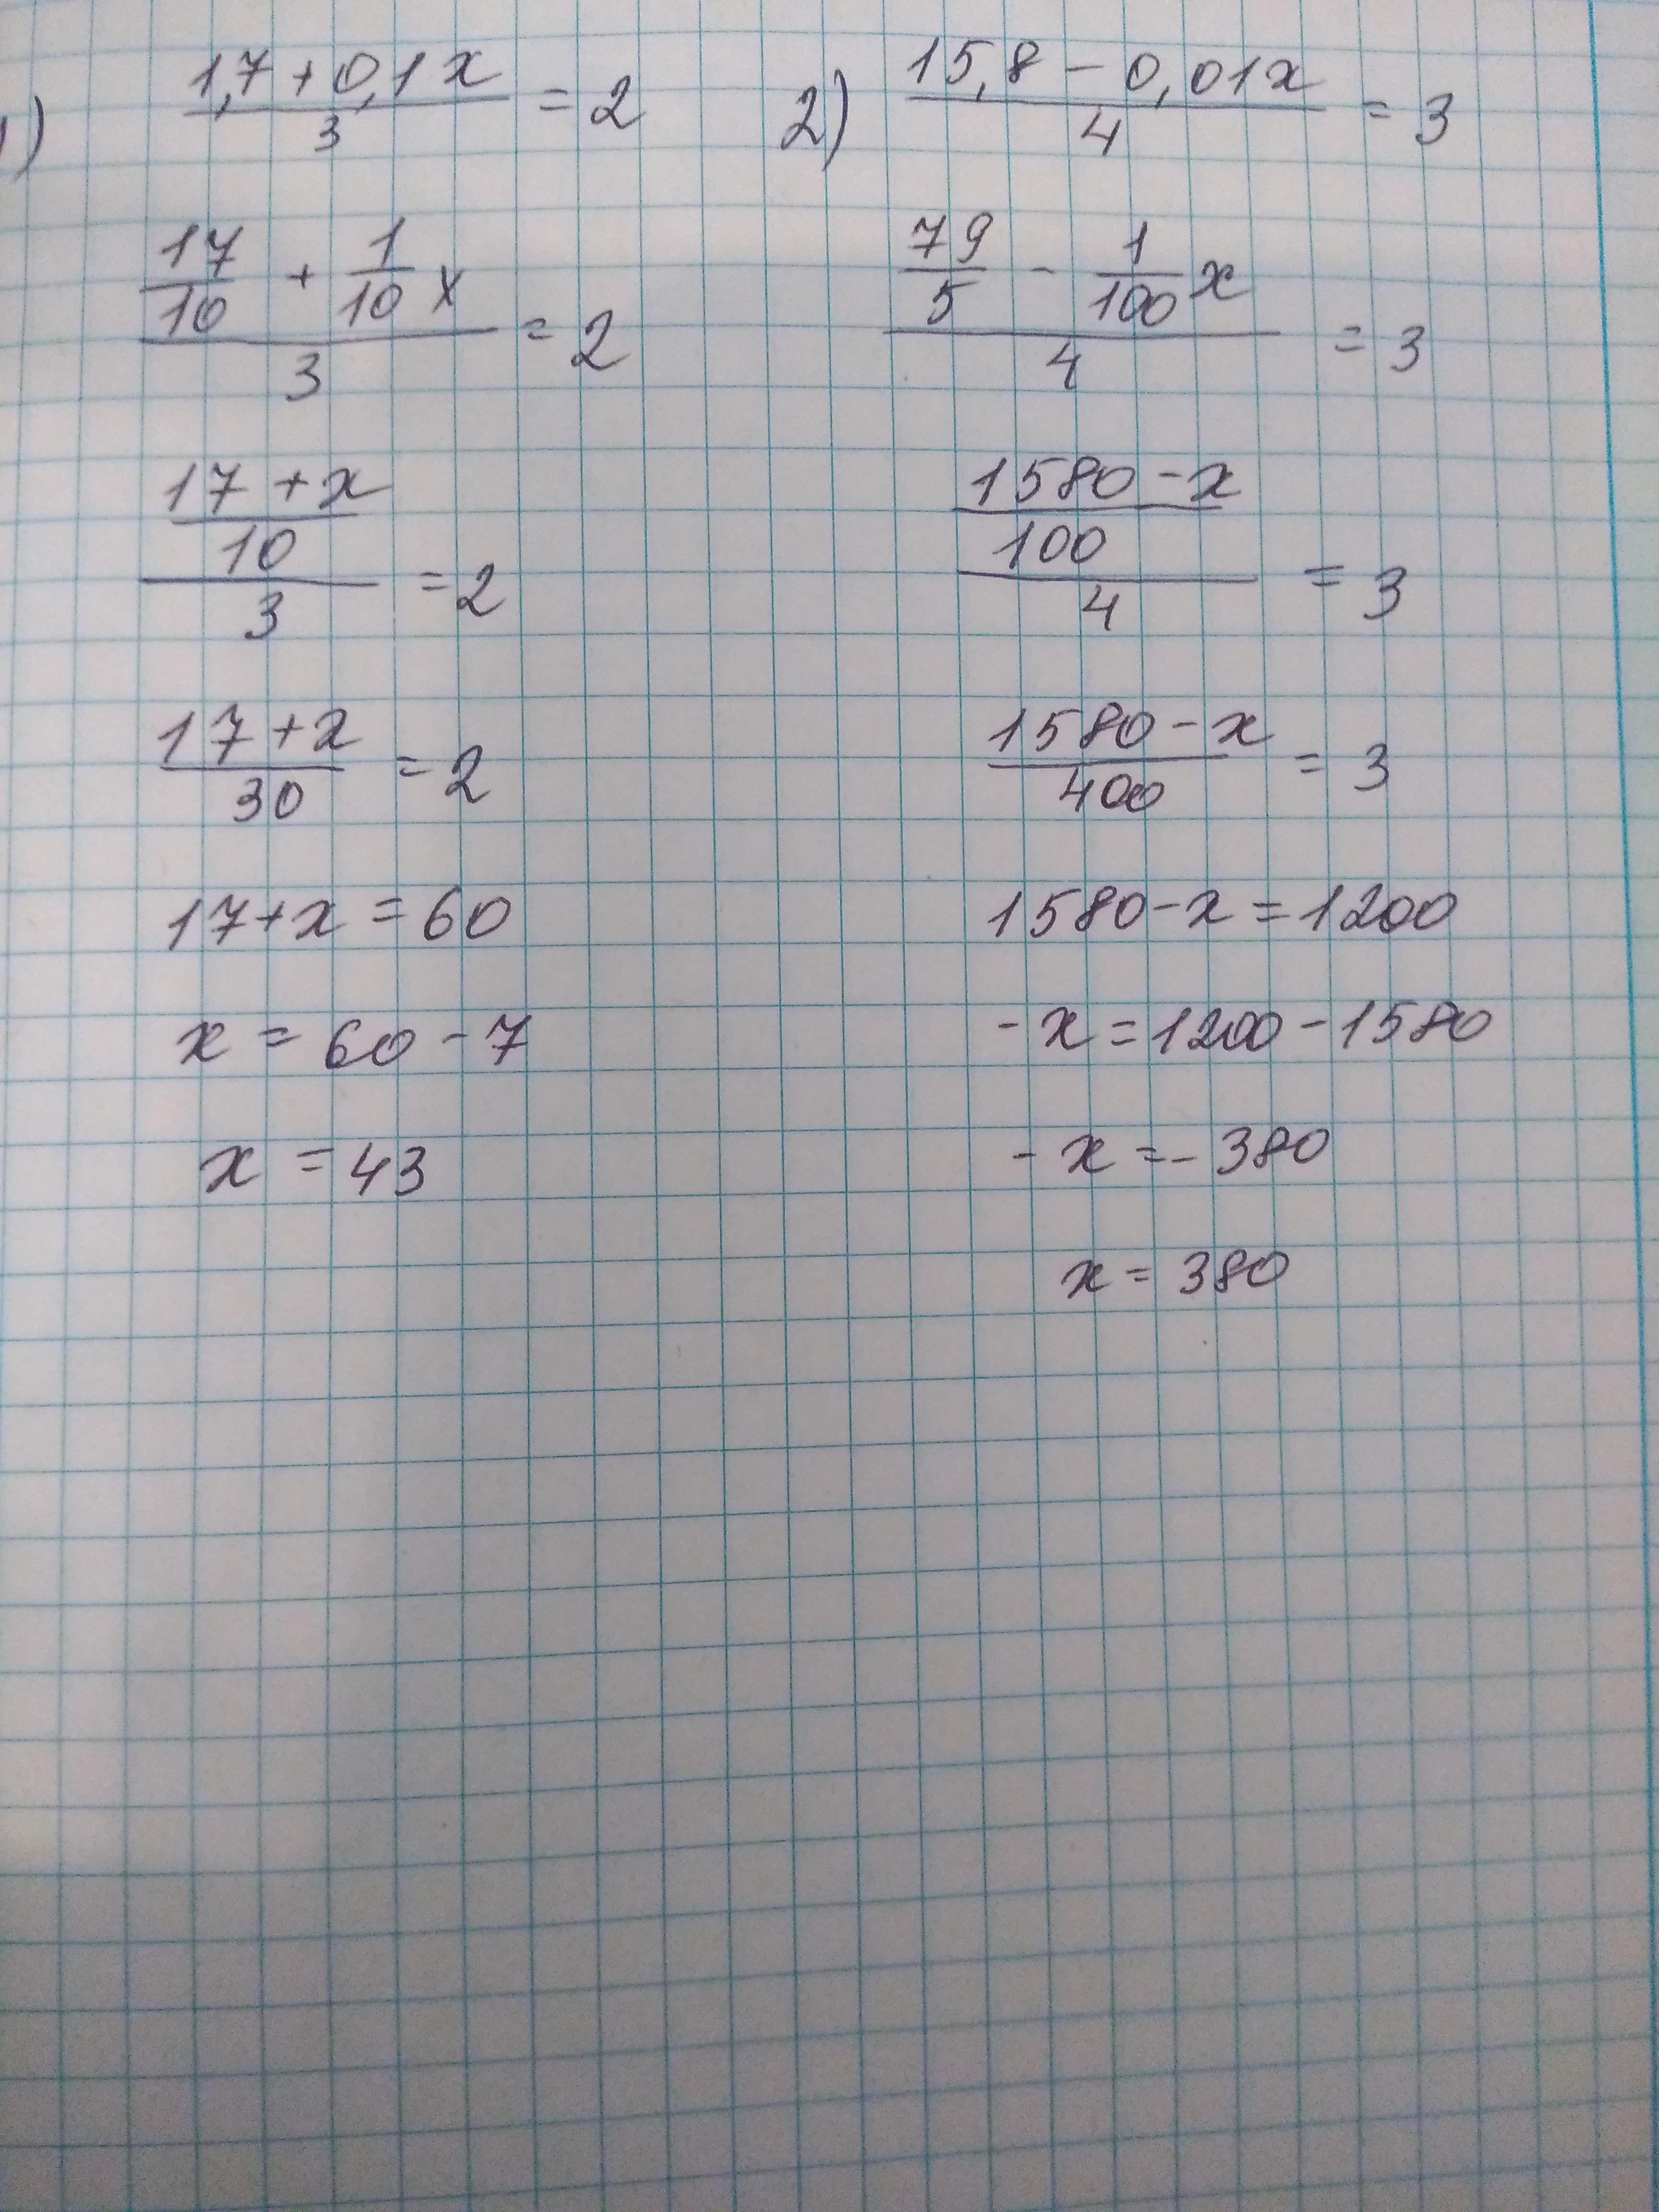 1) (1,7 + 0,1x)/3 = 2
(17/10 + 1/10 x)/3 = 2
((17 + x)/10)/3 = 2
(17 + x)/30 = 2
17 + x = 60
x = 60 - 7
x = 43
2) (15,8 - 0,01x)/4 = 3
(79/5 - 1/100 x)/4 = 3
((1580 - x)/100)/4 = 3
(1580 - x)/400 = 3
1580 - x = 1200
- x = 1200 - 1580
- x = - 380
x = 380